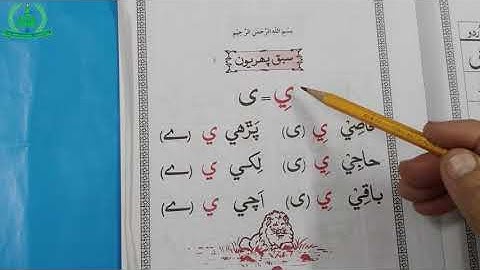 بسم الله الرحمن الرحيم
سبق پھريون
يِ = ی
قاضِيْ يِ (ی) پَڙهي ي (ے)
حاجِيْ يِ (ی) لِکي ي (ے)
باقِيْ يِ (ی) اَچي ي (ے)